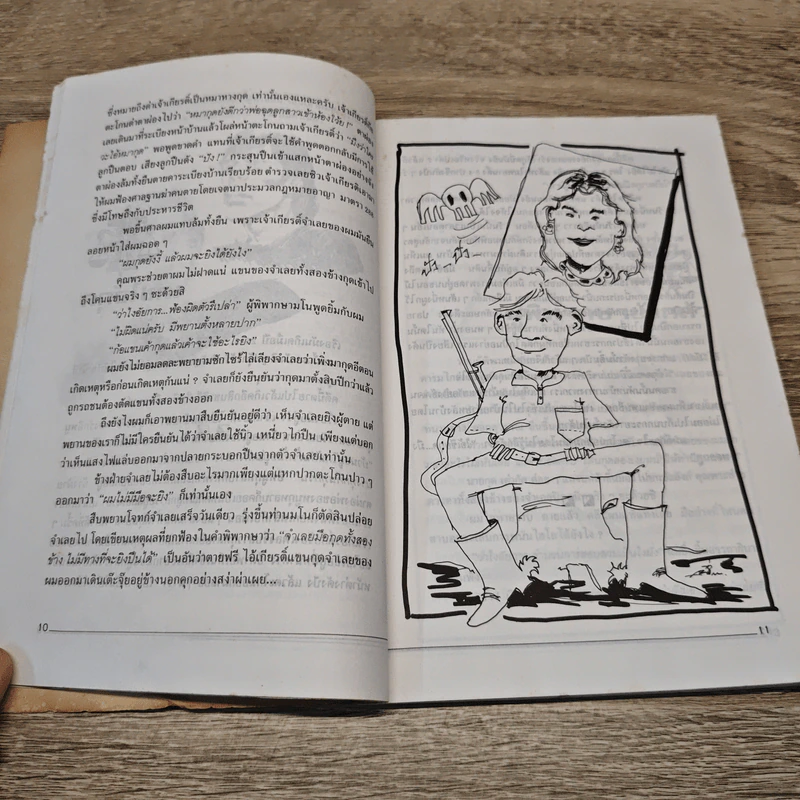 ซึ่งหมายถึงด่าเจ้าเกียรติ์เป็นหมาทางกุด เท่านั้นเองแหละครับ เจ้าเกียรติ์ก็
ตะโกนด่าตาผ่องไปว่า "หมากุดยังดีกว่าพ่อจูดลูกสาวเข้าห้องไว้ย !"
เลยเดินมาที่ระเบียงหน้าบ้านแล้วโผล่หน้าตะโกนถามเจ้าเกียรติ์ว่า "มึงว่าใคร
จะไอ้หมากุด" พอพูดขาดคำ แทนที่เจ้าเกียรติ์จะใช้คำพูดตอกกลับมีการใช้
ลูกปืนตอบ เสียงลูกปืนดัง "ปัง !" กระสุนปืนเข้าแสกหน้าตาผ่องอย่างจัง
ตาผ่องล้มทั้งยืนตายคาระเบียงบ้านเรียบร้อย ตำรวจเลยซิวเจ้าเกียรติ์เอามา
ให้ผมฟ้องศาลฐานฆ่าคนตายโดยเจตนาประมวลกฎหมายอาญา มาตรา 288
ซึ่งมีโทษถึงกับประหารชีวิต
พอขึ้นศาลผมแทบล้มทั้งยืน เพราะเจ้าเกียรติ์จำเลยของผมมันยืน
ลอยหน้าใส่ผมฉอด ๆ
"ผมกุดยังงี้ แล้วผมจะยิงได้ยังไง"
คุณพระช่วยตาผมไม่ฝาดแน่ แขนของจำเลยทั้งสองข้างกุดเข้าไป
ถึงโคนแขนจริง ๆ ซะด้วยสิ
"ว่าไงอัยการ...ฟ้องผิดตัวรึเปล่า" ผู้พิพากษามโนพูดยิ้มกับผม
"ไม่ผิดแน่ครับ มีพยานตั้งหลายปาก"
"ก็แขนเค้ากุดแล้วเค้าจะใช้อะไรยิง"
ผมยังไม่ยอมลดละพยายามซักไซ้ไล่เลียงจำเลยว่าเพิ่งมากุดอีตอน
เกิดเหตุหรือก่อนเกิดเหตุกันแน่ ? จำเลยก็ยังยืนยันว่ากุดมาตั้งสิบปีกว่าแล้ว
ถูกรถชนต้องตัดแขนทั้งสองข้างออก
ถึงยังไงผมก็เอาพยานมาสืบยืนยันอยู่ดีว่า เห็นจำเลยยิงผู้ตาย แต่
พยานของเราก็ไม่มีใครยืนยันได้ว่าจำเลยใช้นิ้ว เหนี่ยวไกปืน เพียงแต่บอก
ว่าเห็นแสงไฟแล่บออกมาจากปลายกระบอกปืนจากตัวจำเลยเท่านั้น
ข้างฝ่ายจำเลยไม่ต้องสืบอะไรมากเพียงแต่แหกปากตะโกนปาว ๆ
ออกมาว่า "ผมไม่มีมือจะยิง" ก็เท่านั้นเอง
สืบพยานโจทก์จำเลยเสร็จวันเดียว รุ่งขึ้นท่านมโนก็ตัดสินปล่อย
จำเลยไป โดยเขียนเหตุผลที่ยกฟ้องในคำพิพากษาว่า "จำเลยมือกุดทั้งสอง
ข้าง ไม่มีทางที่จะยิงปืนได้" เป็นอันว่าตายฟรี ไอ้เกียรติ์แขนกุดจำเลยของ
ผมออกมาเดินเต๊ะจุ๊ยอยู่ข้างนอกคุกอย่างสง่าผ่าเผย...
10
11